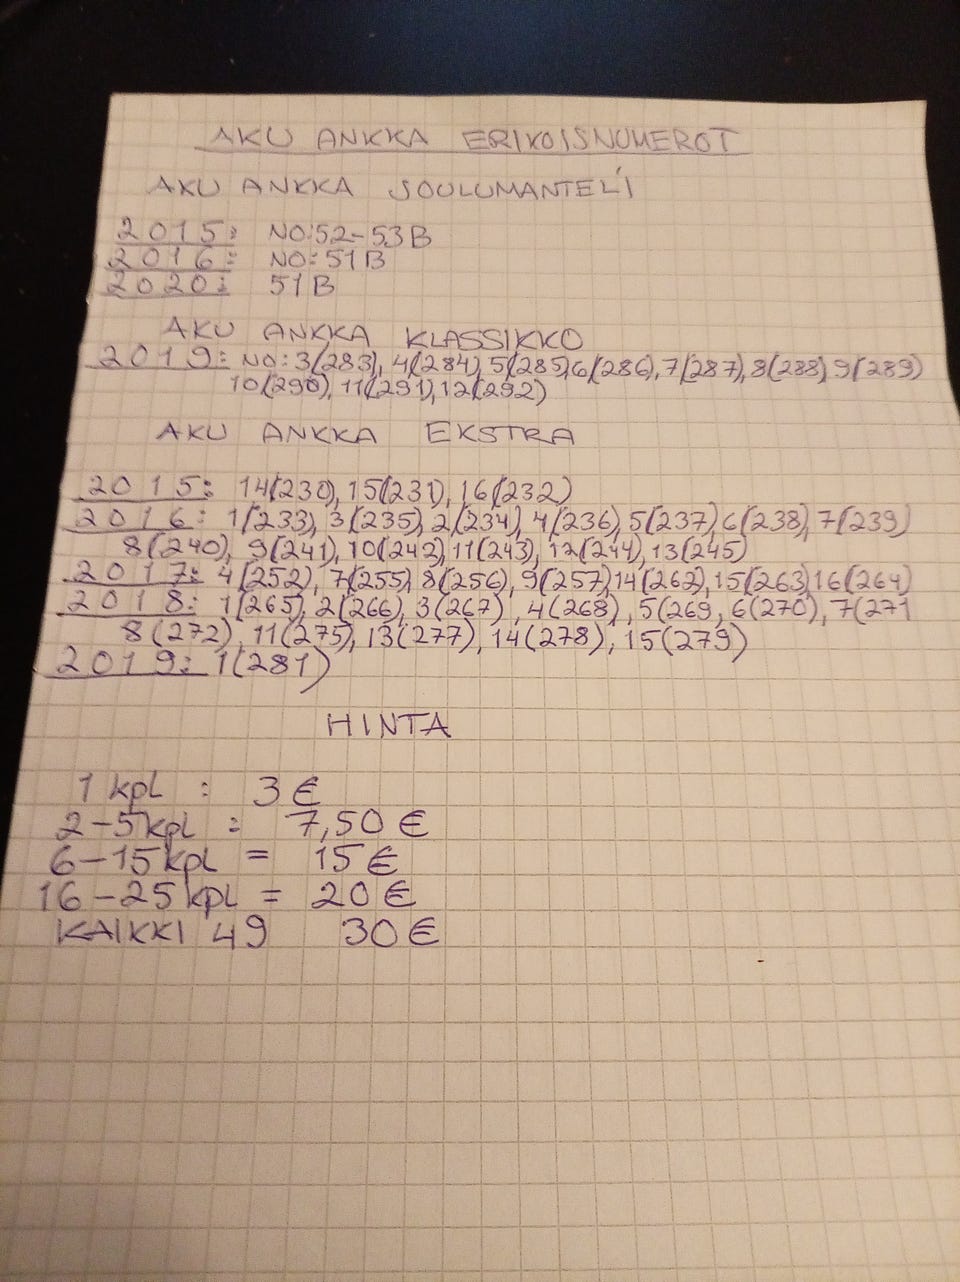 AKU ANKKA ERIKOISNUMEROT
AKU ANKKA JOULUMANTELI
2015: NO:52-53B
2016: NO:51B
2020: 51B
AKU ANKKA KLASSIKKO
2019: NO:3(283), 4(284), 5(285), 6(286), 7(287), 8(288), 9(289)
10(290), 11(291), 12(292)
AKU ANKKA EKSTRA
2015: 14(230), 15(231), 16(232)
2016: 1(233), 3(235), 2(234), 4(236), 5(237), 6(238), 7(239)
8(240), 9(241), 10(242), 11(243), 12(244), 13(245)
2017: 4(252), 7(255), 8(256), 9(257), 14(262), 15(263), 16(264)
2018: 1(265), 2(266), 3(267), 4(268), 5(269, 6(270), 7(271
8(272), 11(275), 13(277), 14(278), 15(279)
2019: 1(281)
HINTA
1 kpl : 3 €
2-5 kpl = 7,50 €
6-15 kpl = 15 €
16-25 kpl = 20 €
KAIKKI 49 30 €